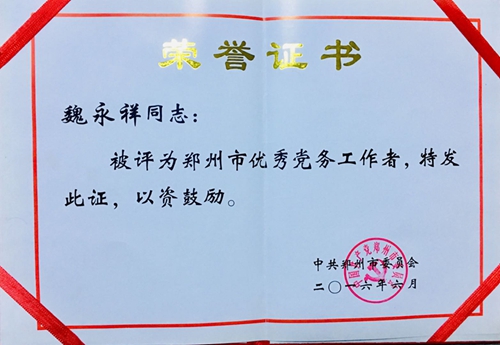 荣誉证书
魏永祥同志：
被评为郑州市优秀党务工作者，特发
此证，以资鼓励。
中共郑州市委员会
二〇一六年六月